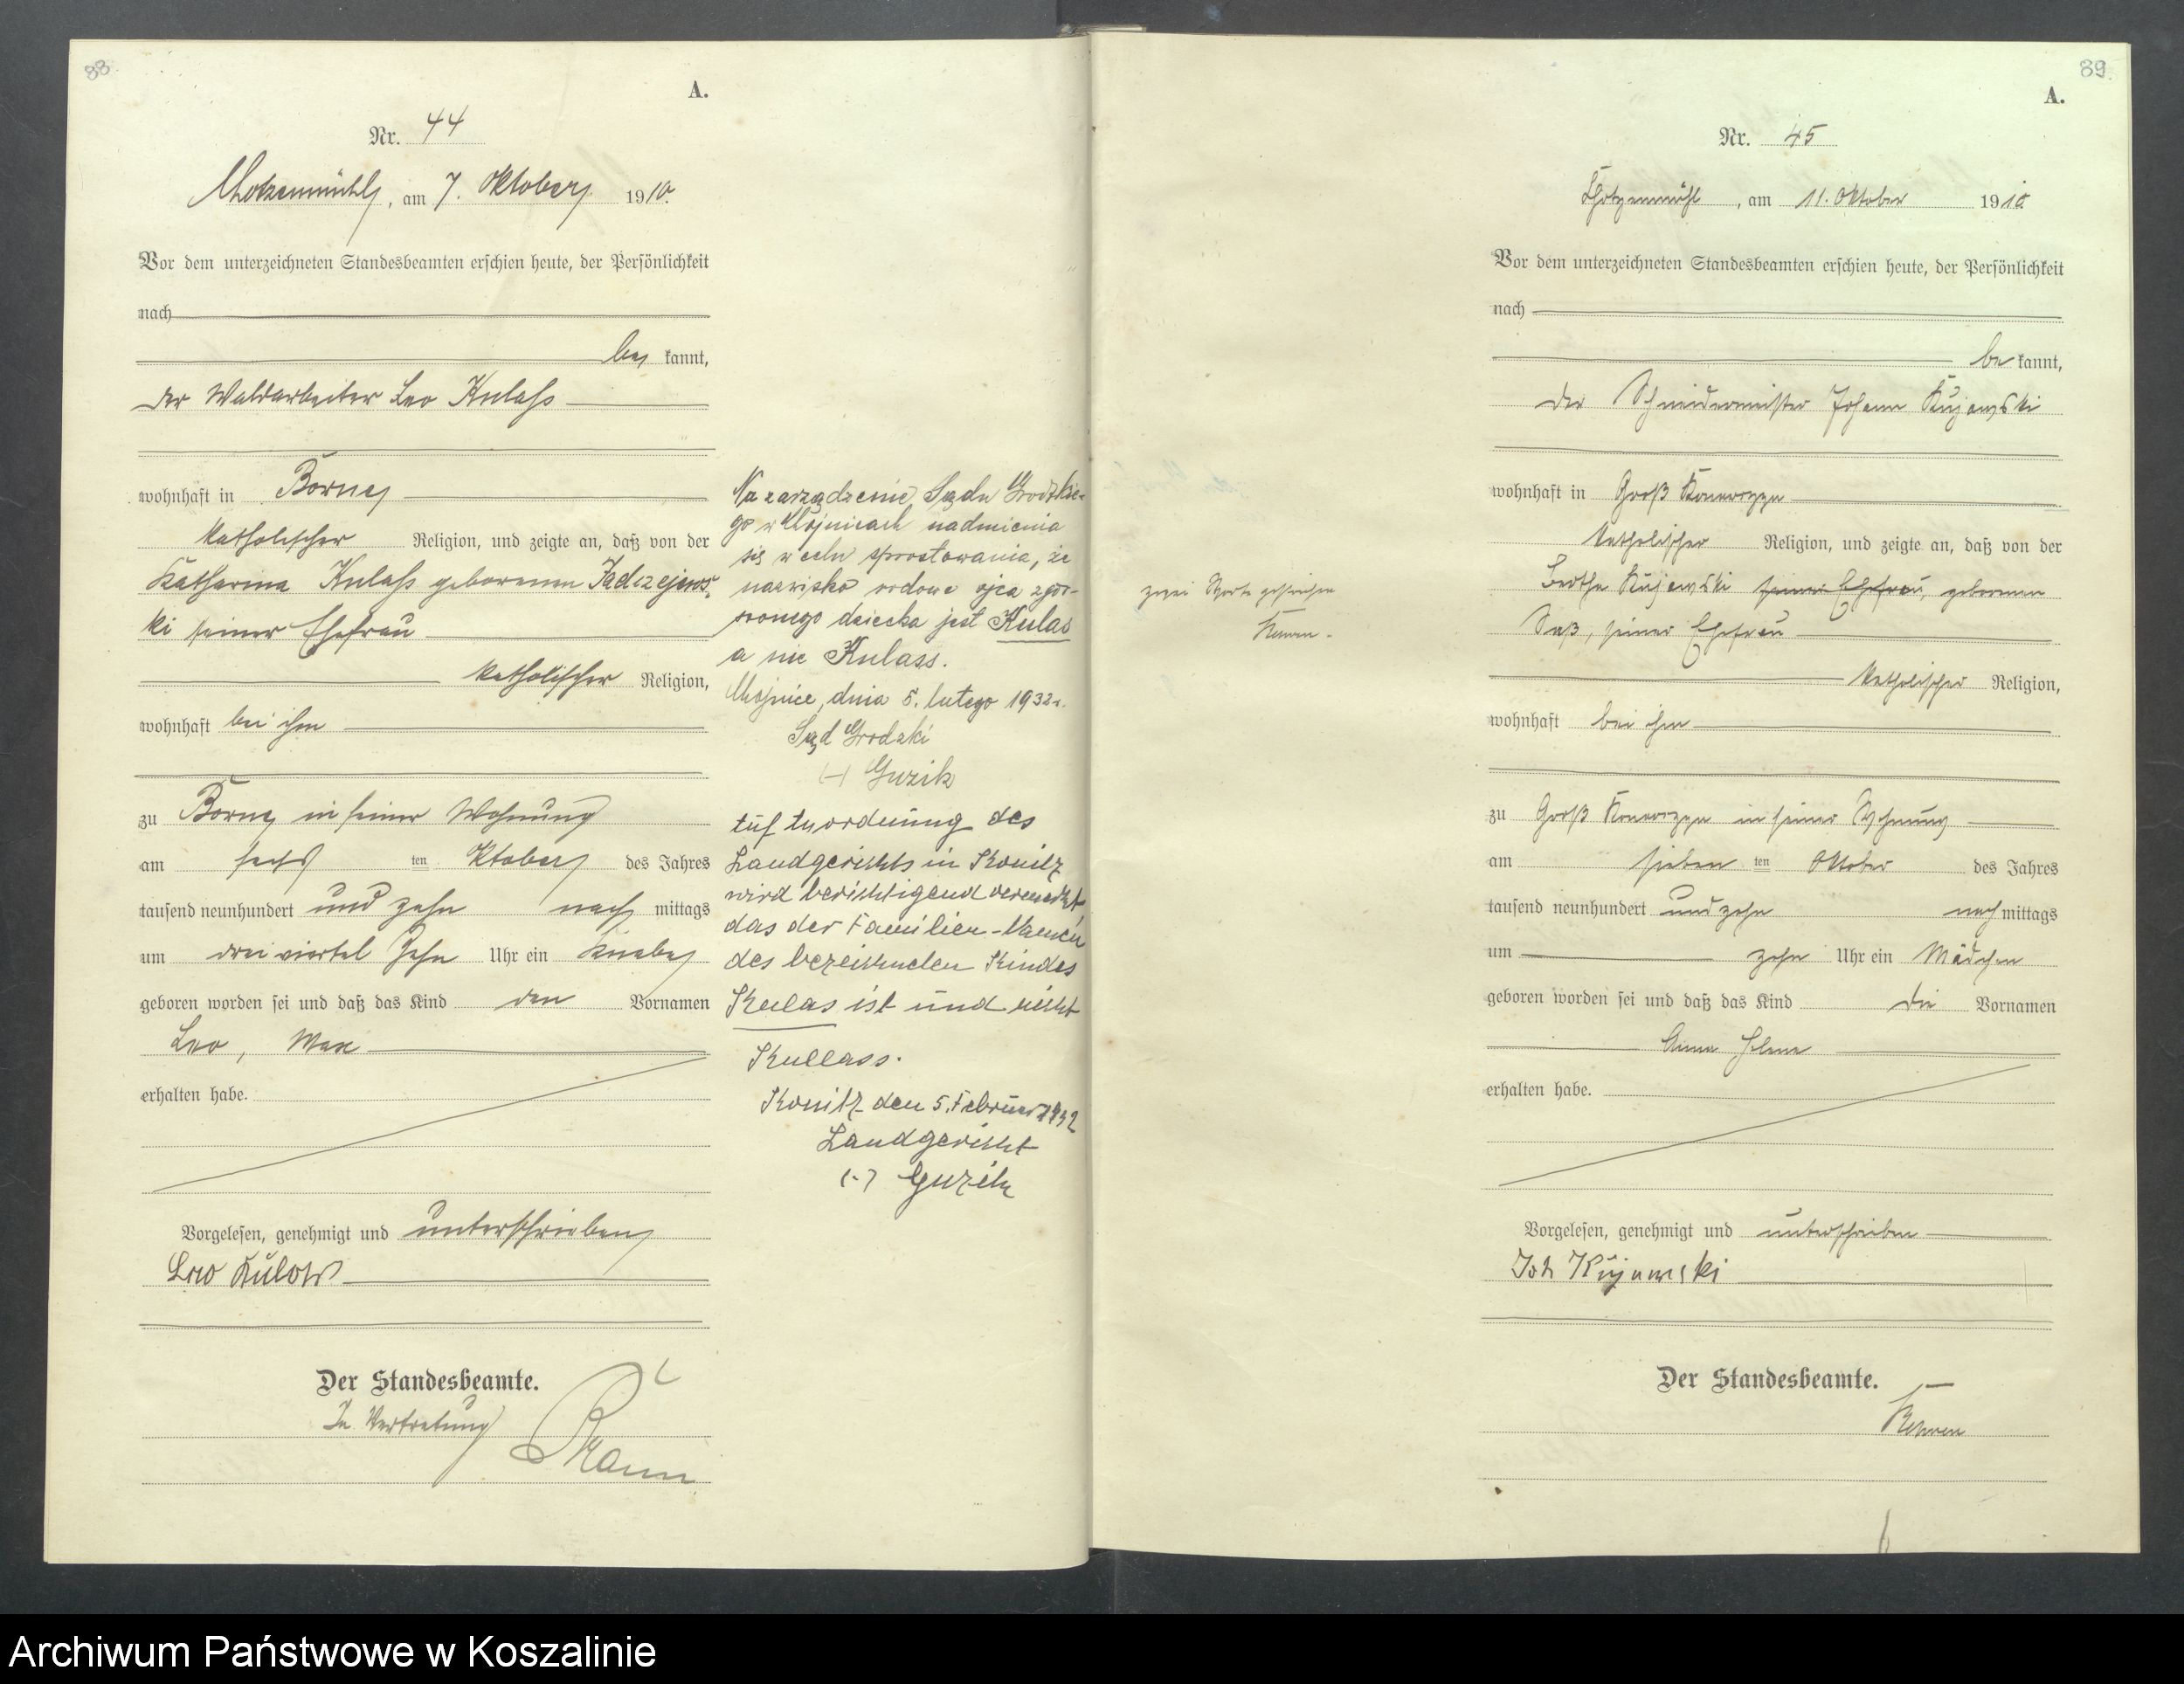 88.
A.
Nr. 44
Chotzenmühl, am 7. Oktober 1910.
Vor dem unterzeichneten Standesbeamten erschien heute, der Persönlichkeit
nach
be kannt,
der Waldarbeiter Leo Kulass
wohnhaft in Borne
katholischer Religion, und zeigte an, daß von der
Katharina Kulass geborenen Jadczejews-
ki seiner Ehefrau
katholischer Religion,
wohnhaft bei ihm
zu Borne in seiner Wohnung
am sechs ten Oktober des Jahres
tausend neunhundert und zehn nach mittags
um dreiviertel Zehn Uhr ein Knabe
geboren worden sei und daß das Kind den Vornamen
Leo, Max
erhalten habe.
Vorgelesen, genehmigt und unterschrieben
Leo Kulas
Der Standesbeamte.
In Vertretung
Na zarządzenie Sądu Grodzkie-
go w Chojnicach nadmienia
się w celu sprostowania, że
nazwisko rodowe ojca zgło-
szonego dziecka jest Kulas
a nie Kulass.
Chojnice, dnia 5. lutego 1932 r.
Sąd Grodzki
(-) Guzik
Auf Anordnung des
Landgerichts in Konitz
wird berichtigend vermerkt
das der Familien-Namen
des bezeichneten Kindes
Kulas ist und nicht
Kullass.
Konitz den 5. Februar 1932
Landgericht
(-) Guzik
89.
A.
Nr. 45
Chotzenmühl, am 11. Oktober 1910.
Vor dem unterzeichneten Standesbeamten erschien heute, der Persönlichkeit
nach
be kannt,
der Schneidermeister Johann Kujawski
wohnhaft in Groß Konarczyn
katholischer Religion, und zeigte an, daß von der
Bertha Kujawski seiner Ehefrau, geborenen
Saß, seiner Ehefrau
katholischer Religion,
wohnhaft bei ihm
zu Groß Konarczyn in seiner Wohnung
am sieben ten Oktober des Jahres
tausend neunhundert und zehn nach mittags
um zehn Uhr ein Mädchen
geboren worden sei und daß das Kind die Vornamen
Anna Helena
erhalten habe.
Vorgelesen, genehmigt und unterschrieben
Joh Kujawski
Der Standesbeamte.
zwei Worte gestrichen
Archiwum Państwowe w Koszalinie